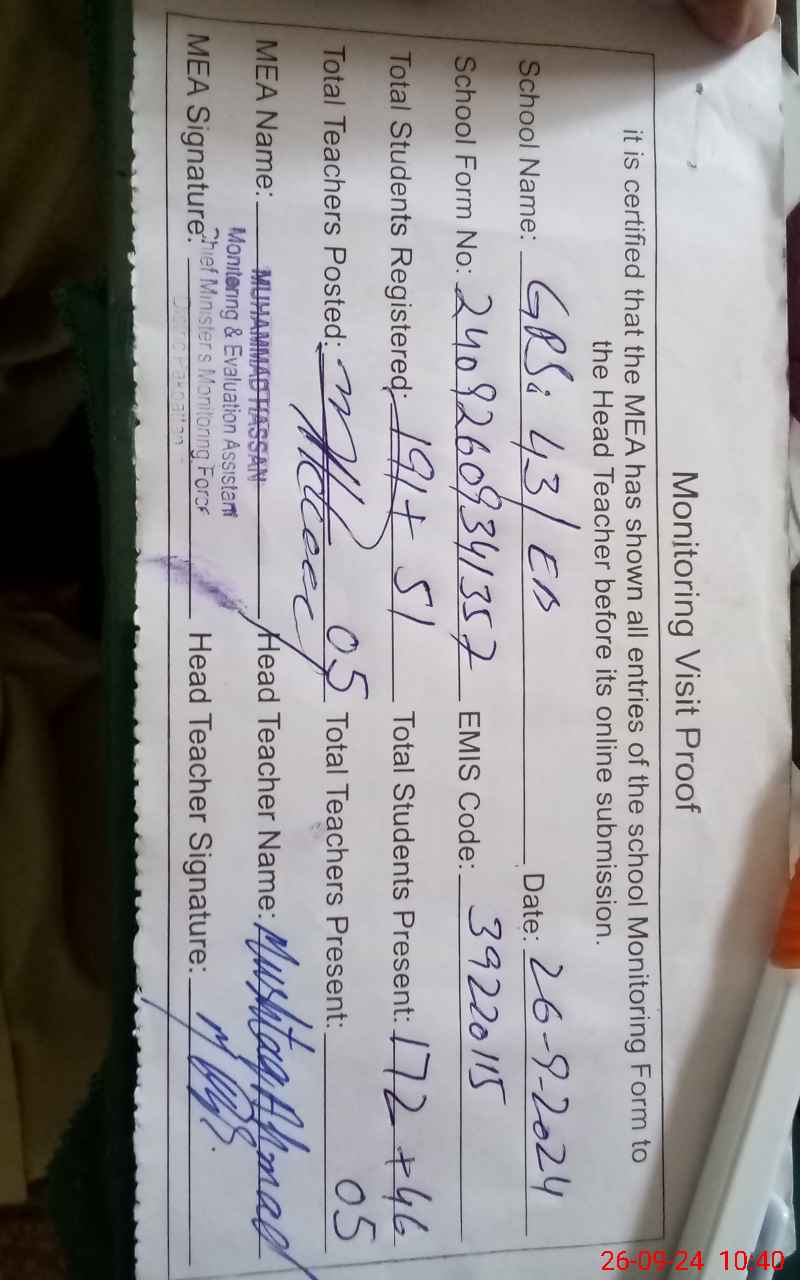 Monitoring Visit Proof
it is certified that the MEA has shown all entries of the school Monitoring Form to
the Head Teacher before its online submission.
School Name: GPS: 43/EB Date: 26-9-2024
School Form No: 24092609341357 EMIS Code: 39220115
Total Students Registered: 191+ 51 Total Students Present: 172 +46
Total Teachers Posted: 05 Total Teachers Present: 05
MEA Name: MUHAMMAD HASSAN Head Teacher Name: Mushtaq Ahmad
Monitoring & Evaluation Assistant
Chief Minister's Monitoring Force
MEA Signature: Head Teacher Signature:
District Pakpattan
26-09-24 10:40